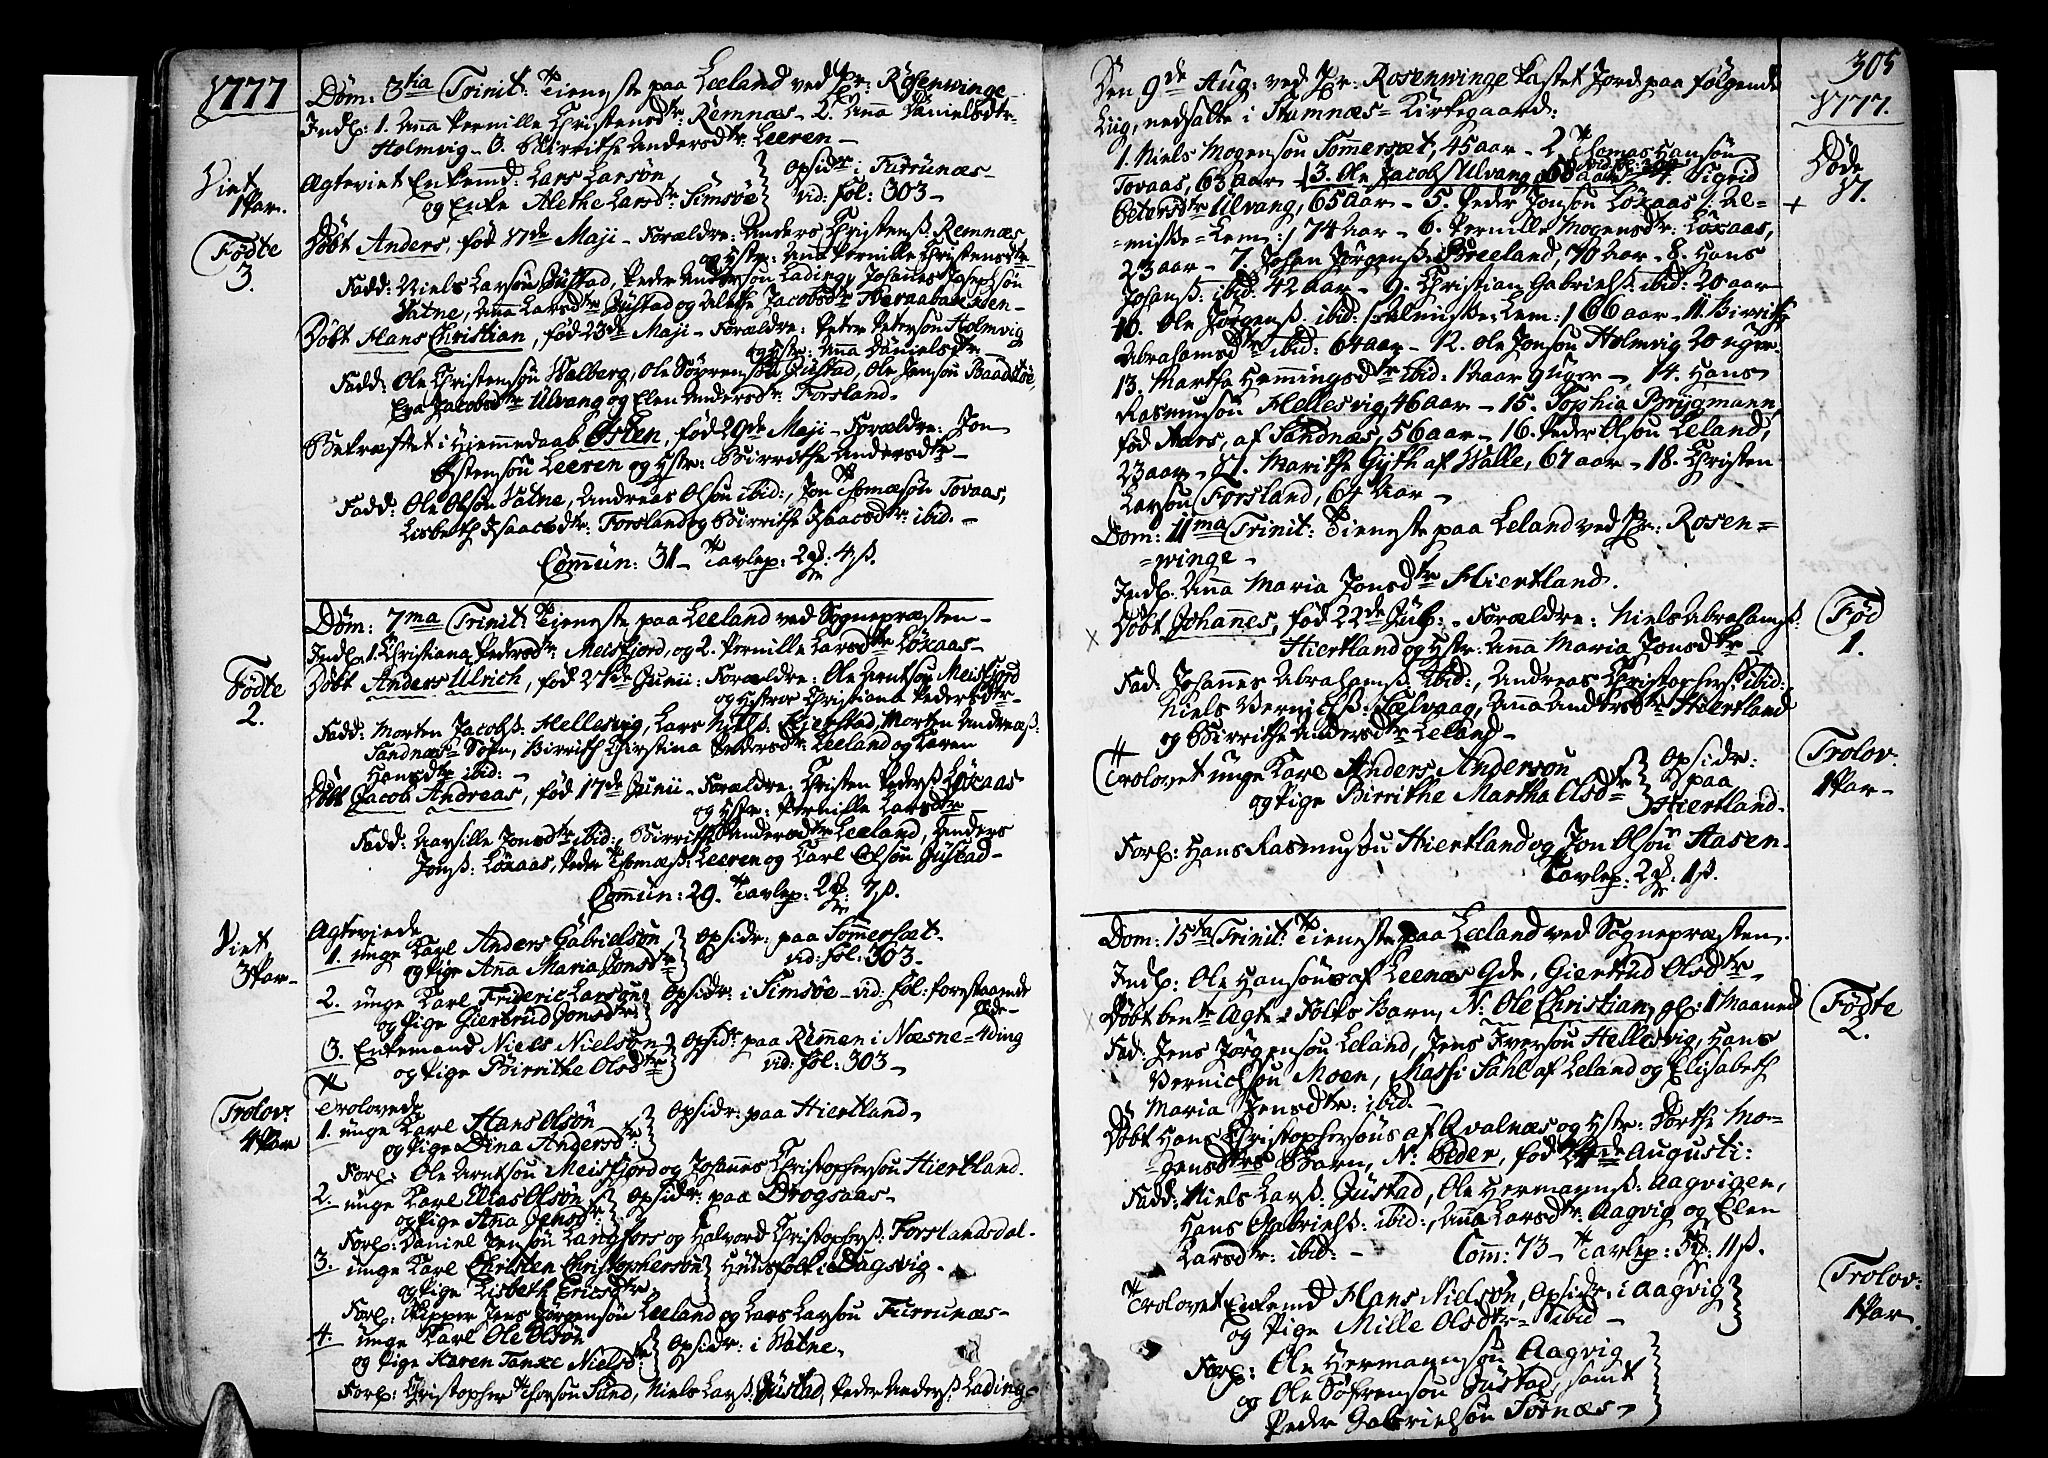 1777
Dom: 3tia Trinit: Tieneste paa Leeland ved Pr: Rosenwinge
Indl: 1. Anna Pernille Christensdtr: Remnæs - 2. Anna Danielsdtr
Holmvig - 3. Birrithe Andersdtr Leeren -
Viet
1 Par.
Ægteviet Enkemd: Lars Larsøn
og Enke Alethe Larsdtr: Simsøe
opsidr: Furrunæs -
vid: fol: 303 -
Fødte
3.
Døbt Anders, fød 17de Maji - Forældre: Anders Christenß: Remnæs
og Hstr: Ana Pernille Christensdtr
Fadd: Niels Larsøn Jüstad, Peder Andersøn Lading, Johannes
Vatne, Anna Larsdtr Jüstad og Alethe Jacobsdtr
Døbt Hans Christian, fød 23de Maji - Forældre: Peter Petersøn Holmvig
og Hstr: Anna Danielsdtr
Fadd: Ole Christensøn Walberg, Ole Sørensøn Jüstad, Ole Jensøn
Eva Jacobsdtr Ulvang og Elen Andersdtr: Forsland.
Bekræftet i Hiemmedaab Østen, fød 29de Maji - Forældre: Jon
Østensøn Leeren og Hstr: Birrithe Andersdtr -
Fadd: Ole Olsøn Vatne, Andreas Olsøn ibid:, Jon Thomæsøn Tovaas,
Lisbeth Isaacsdtr: Forsland og Birrithe Isaacsdtr: ibid. -
Com̄un: 31 - Tavlep: 2 4 ß.
Dom: 7ma Trinit: Tieneste paa Leeland ved Sognepræsten -
Indl: 1. Christiana Pedersdtr: Meisfjord, og 2. Pernille Larsdtr Løkaas -
Fødte
2.
Døbt Anders Ulrich, fød 27de Junii: Forældre: Ole Arntsøn Meisfjord
og Hstr Christiana Pedersdtr -
Fadd: Morten Jacobß: Hellesvig, Lars Nielß: Morten Andreæß:
Sandnæs Birrith Christina Pedersdtr: Leeland og Karen
Hansdtr ibid: -
Døbt Jacob Andreas, fød 17de Junii - Forældre: Christen Pederß: Løkaas
og Hstr: Pernille Larsdtr -
Fadd: Marsille Jonsdtr ibid:, Birrithe Andersdtr Leeland, Anders
Jonß: Løkaas, Peder Thomæß: Leeren og Carl Olsøn Jüstad -
Com̄un: 29. Tavlep: 2 7 ß.
Viet
3 Par -
Ægteviede
1. unge Karl Anders Gabrielsøn
og Pige Anna Maria Jonsdtr
opsidr: paa Sommersæt -
vid: fol: 303 -
2. unge Karl Frideric Larsøn
og Pige Giertrud Jonsdtr:
opsidr: i Simsøe - vid: fol: forestaaende
Side -
3. Enkemand Niels Nielsøn
og Pige Birrithe Olsdtr
opsidr: paa Remmen i Næsne=
vid: fol: 303 -
Trolov:
4 Par
Trolovede
1. unge Karl Hans Olsøn
og Pige Dina Andersdtr:
opsidr: paa Hiertland -
Forl: Ole Arntsøn Meisfjord og Johannes Christophersøn Hiertland.
2. unge Karl Elias Olsøn
og Pige Ana Jensdtr:
opsidr: paa Drogsaas -
Forl: Daniel Jensøn Langfors og Halvord Christopherß: Forslandsdal -
3. unge Karl Christen Christophersøn
og Pige Lisbeth Ericsdtr
Huusfolk i Dagsvig -
Forl: Skipper Jens Jørgensøn Leeland og Lars Larsøn Furrunæs -
4. unge Karl Ole Olsøn
og Pige Karen Tanke Nielsdtr
opsidr: i Vatne.
Forl: Christopher Thorsøn Sund, Niels Larß: Jüstad, Peder Anderß: Lading -
305
1777.
Den 9de Aug: ved Pr: Rosenwinge kastet Jord paa følgende
Liig, nedsatte i Stamnæs Kirkegaard:
Døde
17.
1. Niels Mogensøn Sommersæt, 45 aar - 2 Thomas Hansøn
Tovaas, 63 aar - 3. Ole Jacobß Ulvang 68 aar - 4. Sigrid
Petersdtr Ulvang, 65 aar - 5. Peder Jonsøn Løkaas /: Al=
=misse=Lem :/ 74 aar - 6. Pernille Mogensdtr: Løkaas,
23 aar - 7. Johan Jørgenß: Breeland, 70 aar - 8. Hans
Johanß: ibid: 42 aar - 9. Christian Gabrielß: ibid: 20 aar -
10. Ole Jørgenß: ibid: /: Almisse=Lem :/ 66 aar - 11. Birrithe
Abrahamsdtr ibid: 64 aar - 12. Ole Jonsøn Holmvig 20 uger -
13. Martha Hemmingsdtr ibid: 1 aar 9 uger - 14. Hans
Rasmusøn Hellesvig 46 aar - 15. Sophia Brygmann
fød Aars, af Sandnæs, 56 aar - 16. Peder Olsøn Leland,
23 aar - 17. Marithe Gyth af Walle, 67 aar - 18. Christen
Larsøn Forsland, 64 aar -
Dom: 11ma Trinit: Tieneste paa Leland ved Pr: Rosen=
=winge -
Indl. Anna Maria Jonsdtr Hiertland.
Fød
1.
Døbt Johannes, fød 22de Julii - Forældre: Niels Abrahamß:
Hiertland og Hstr: Anna Maria Jonsdtr -
Fad: Johannes Abrahamß: ibid:, Andreas Christopherß: ibid:
Niels Vernichß: Anna Andersdtr Hiertland
og Birrithe Andersdtr Leland -
Trolov:
1 Par -
Trolovet unge Karl Anders Andersøn
og Pige Birrithe Martha Olsdtr
opsidr:
paa
Hiertland -
Forl: Hans Rasmusøn Hiertland og Jon Olsøn Aasen -
Tavlep: 2 1 ß.
Dom: 15ta Trinit: Tieneste paa Leeland ved Sognepræsten.
Indl: Ole Hansøns af Leenæs Qde, Giertrud Olsdtr -
Fødte
2.
Døbt bente Ægte=Folks Barn, N: Ole Christian, gl: 1 Maaned
Fad: Jens Jørgensøn Leland, Jens Iversøn Hellesvig, Hans
Vernichsøn Moen, Massi Sahl af Leland og Elisabeth
Maria Jensdtr: ibid. -
Døbt Hans Christophersøns af Qvalnæs og Hstr: Dorthe Mo=
=gensdtrs Barn, N: Peder, fød 24de Augusti:
Fadd: Niels Larß: Jüstad, Ole Hermannß: Aagvigen,
Hans Gabrielß: ibid:, Anna Larsdtr: Aagvig og Elen
Larsdtr: ibid: - Com: 73 - Tavlep: 5 11 ß.
Trolov:
1 Par.
Trolovet Enkemd Hans Nielsøn, opsidr: i Aagvig
og Pige Mille Olsdtr ibid -
Forl: Ole Hermannsøn Aagvig
og Ole Sørensøn Jüstad, samt
Peder Gabrielsøn Sørnæs -